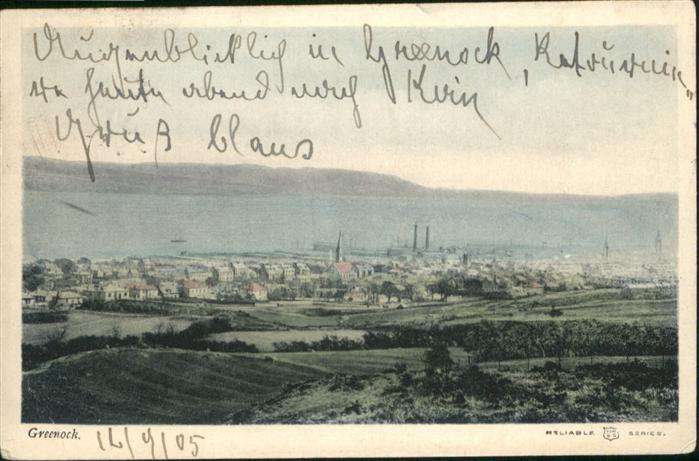 Augenblicklich in Greenock,
heute abend nach
Gruß Claus
Greenock. 14/9/05
RELIABLE SERIES.